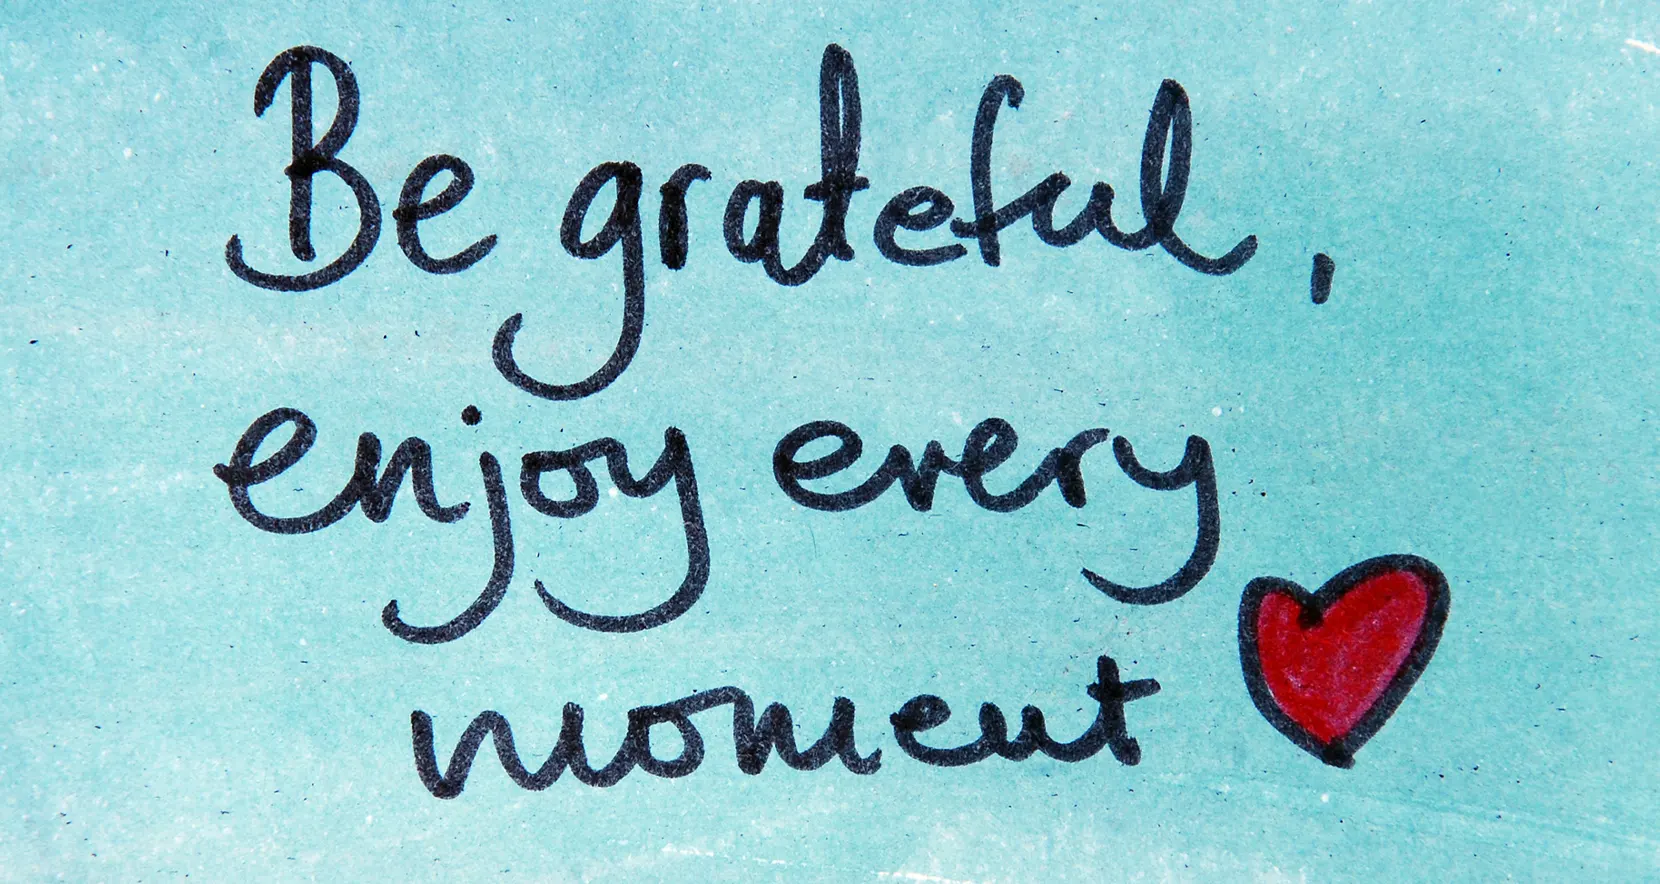 Be grateful,
enjoy every
moment